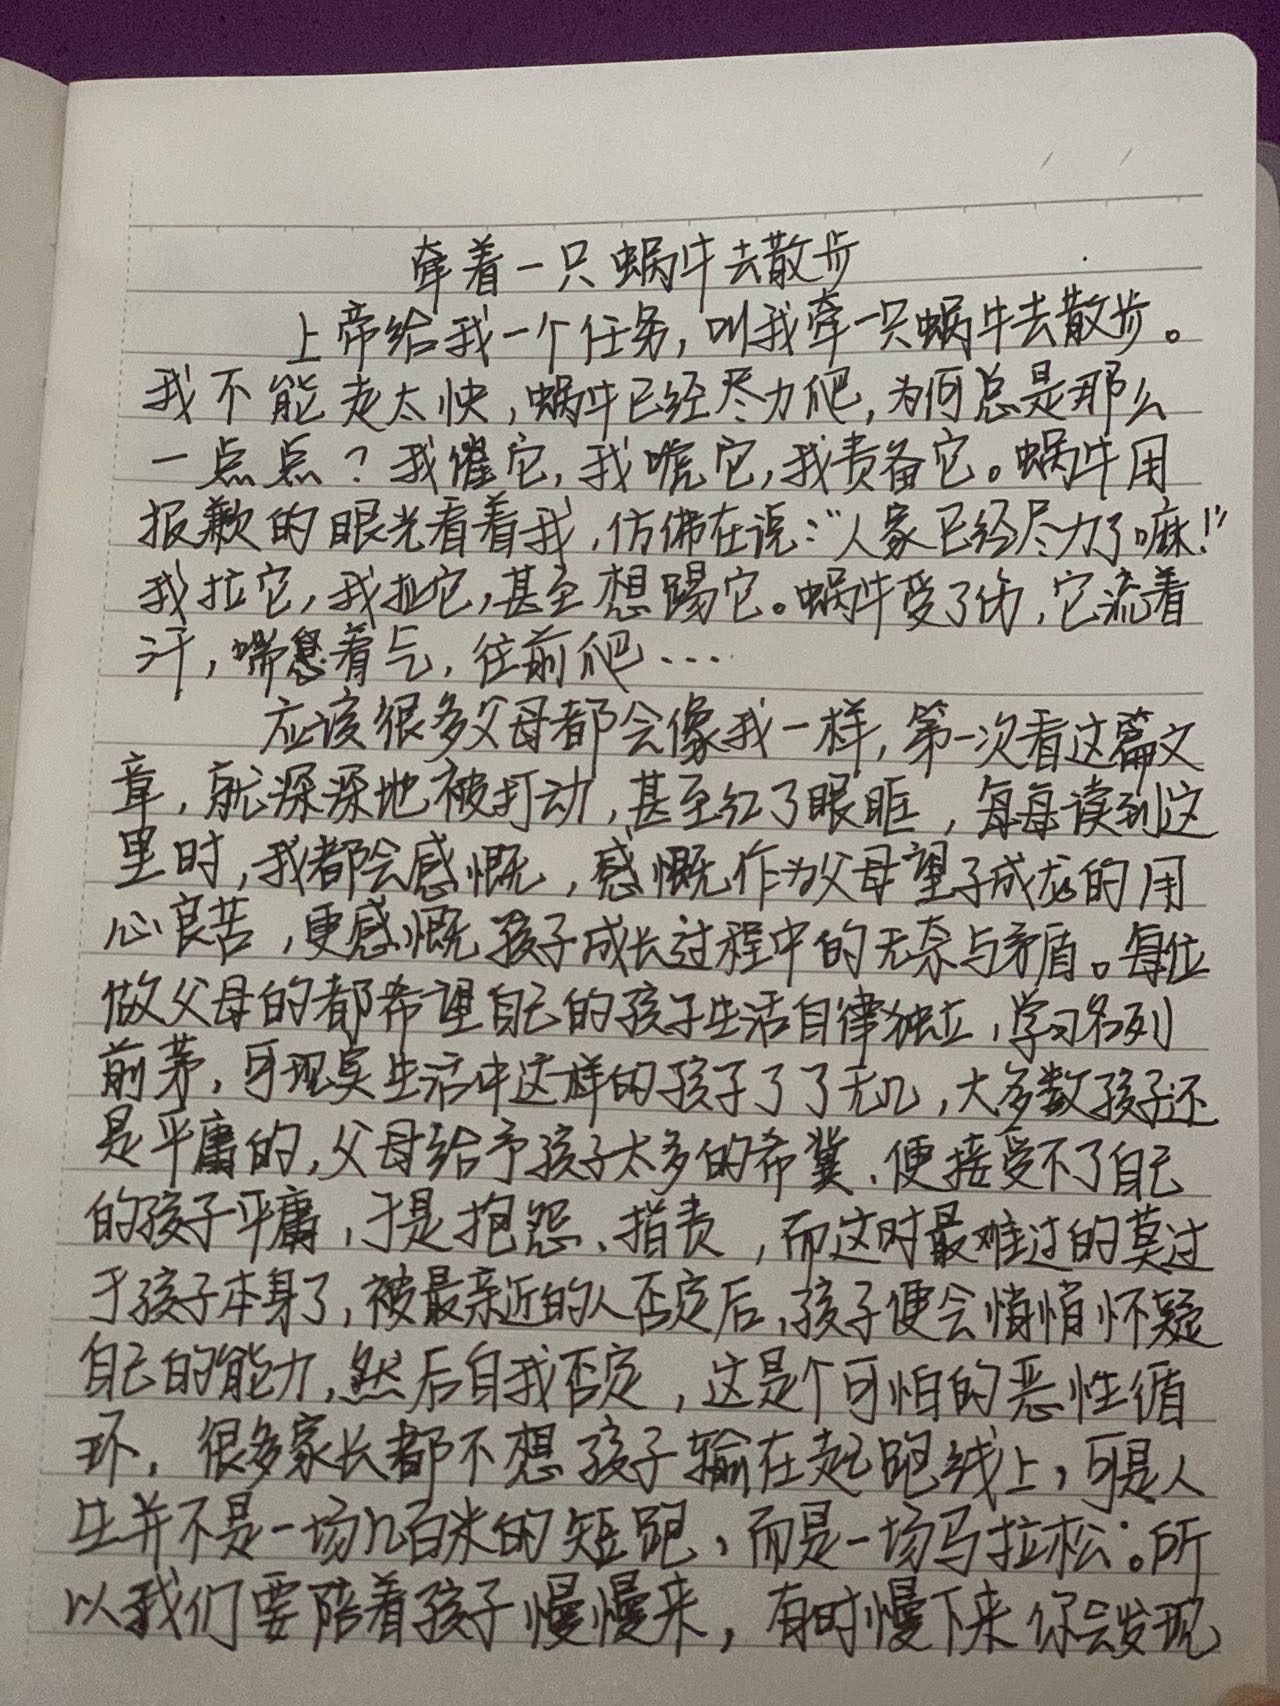 牵着一只蜗牛去散步
上帝给我一个任务,叫我牵一只蜗牛去散步。
我不能走太快,蜗牛已经尽力爬,为何总是那么
一点点?我催它,我唬它,我责备它。蜗牛用
报歉的眼光看着我,仿佛在说:“人家已经尽力了嘛!”
我拉它,我扯它,甚至想踢它。蜗牛受了伤,它流着
汗,喘息着气,往前爬…
应该很多父母都会像我一样,第一次看这篇文
章,就深深地被打动,甚至红了眼眶,每每读到这
里时,我都会感慨,感慨作为父母望子成龙的用
心良苦,更感慨孩子成长过程中的无奈与矛盾。每位
做父母的都希望自己的孩子生活自律独立,学习名列
前茅,可现实生活中这样的孩子了了无几,大多数孩子还
是平庸的,父母给予孩子太多的希冀、便接受不了自己
的孩子平庸,于是抱怨、指责,而这时最难过的莫过
于孩子本身了,被最亲近的人否定后,孩子便会悄悄怀疑
自己的能力,然后自我否定,这是个可怕的恶性循
环,很多家长都不想孩子输在起跑线上,可是人
生并不是一场几百米的短跑,而是一场马拉松。所
以我们要陪着孩子慢慢来,有时慢下来你会发现